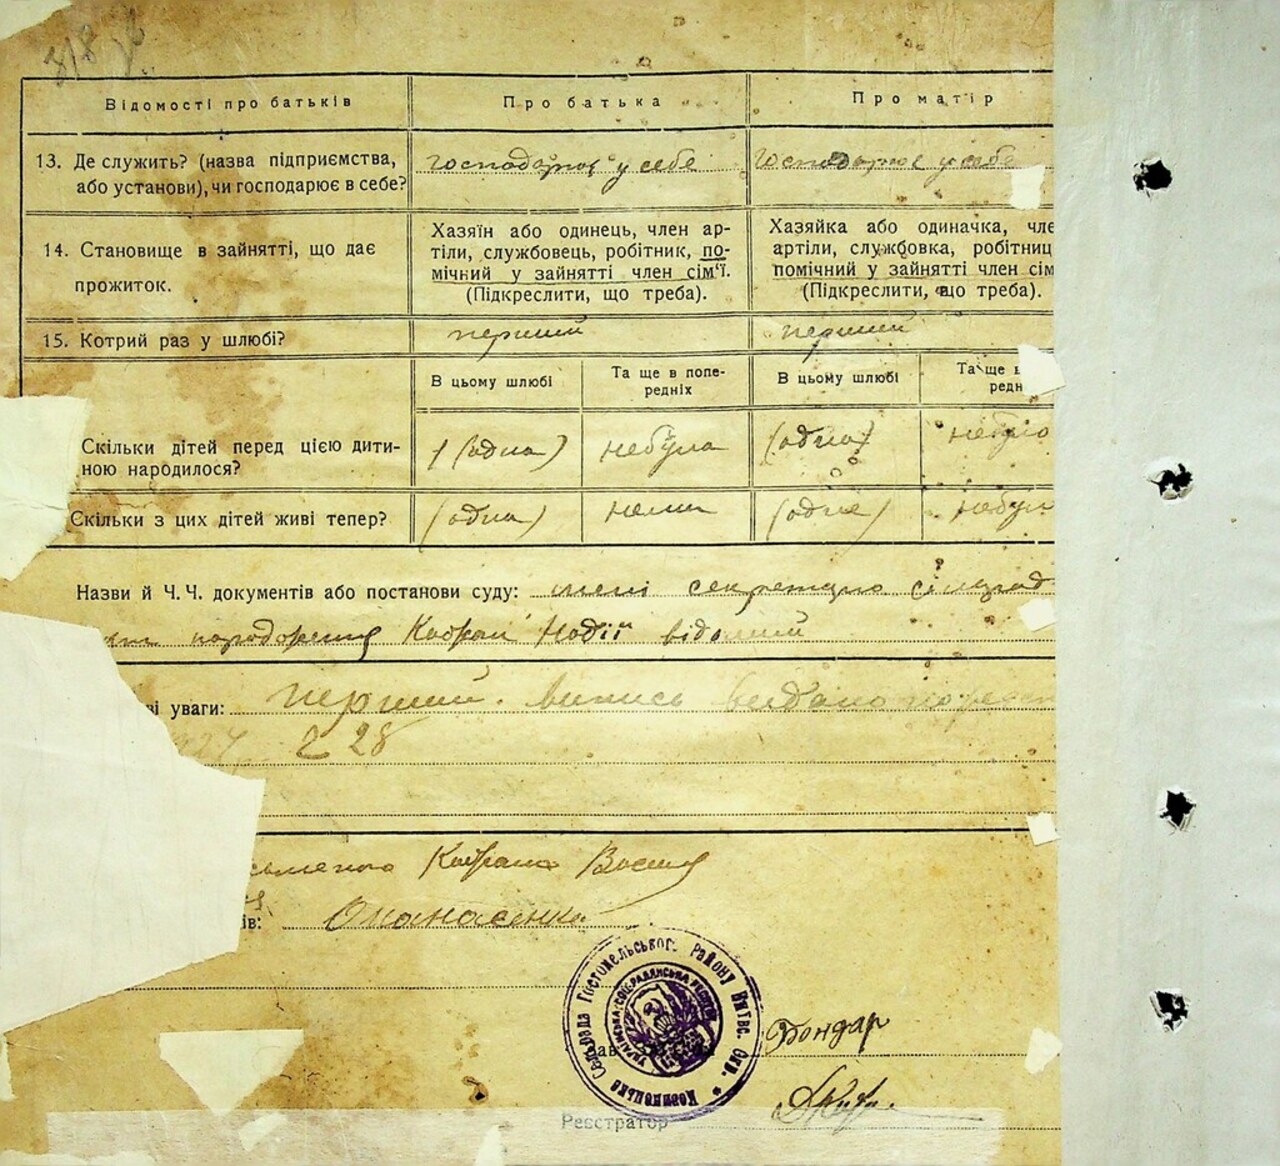 318
Відомості про батьків
Про батька
Про матір
13. Де служить? (назва підприємства, або установи), чи господарює в себе?
господарює у себе
господарює у себе
14. Становище в зайнятті, що дає прожиток.
Хазяїн або одинець, член ар-
тіли, службовець, робітник, по-
мічний у зайнятті член сім'ї.
(Підкреслити, що треба).
Хазяйка або одиначка, чле
артіли, службовка, робітниц
помічний у зайнятті член сім
(Підкреслити, що треба).
15. Котрий раз у шлюбі?
перший
перший
В цьому шлюбі
Та ще в попе-
редніх
В цьому шлюбі
Та ще в
редн
Скільки дітей перед цією дити-
ною народилося?
1 (одна)
небула
(одна)
небуло
Скільки з цих дітей живі тепер?
(одна)
нема
(одне)
небул
Назви й Ч. Ч. документів або постанови суду: мені секретарю сільрад
народження Кобрат Надії відомий
ві уваги: перший. випись видано по реєст
1927 2 28
Васил
ів: Опанасенко
Сельрада Гостомельськог. Району Київс. Окр.
Українська Соц. Радянська Респуб
Бондар
Реєстратор